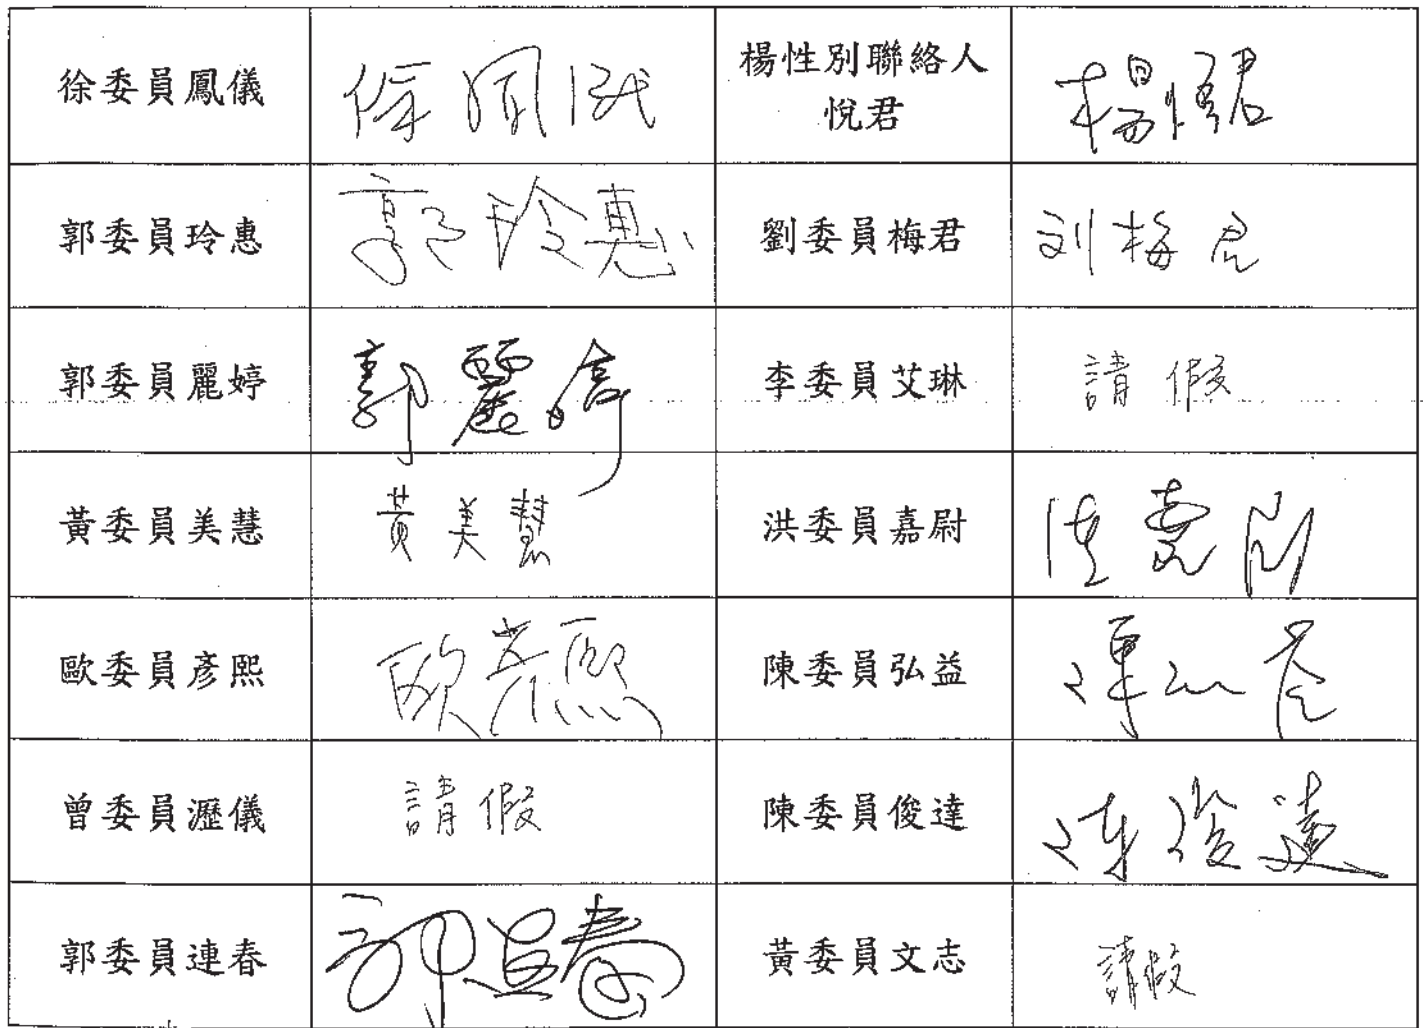 徐委員鳳儀 徐鳳儀 楊性別聯絡人 楊悅君
悅君
郭委員玲惠 郭玲惠 劉委員梅君 刘梅君
郭委員麗婷 郭麗婷 李委員艾琳 請假
黃委員美慧 黃美慧 洪委員嘉尉 洪嘉尉
歐委員彥熙 歐彥熙 陳委員弘益 陳弘益
曾委員瀝儀 請假 陳委員俊達 陳俊達
郭委員連春 郭連春 黃委員文志 請假